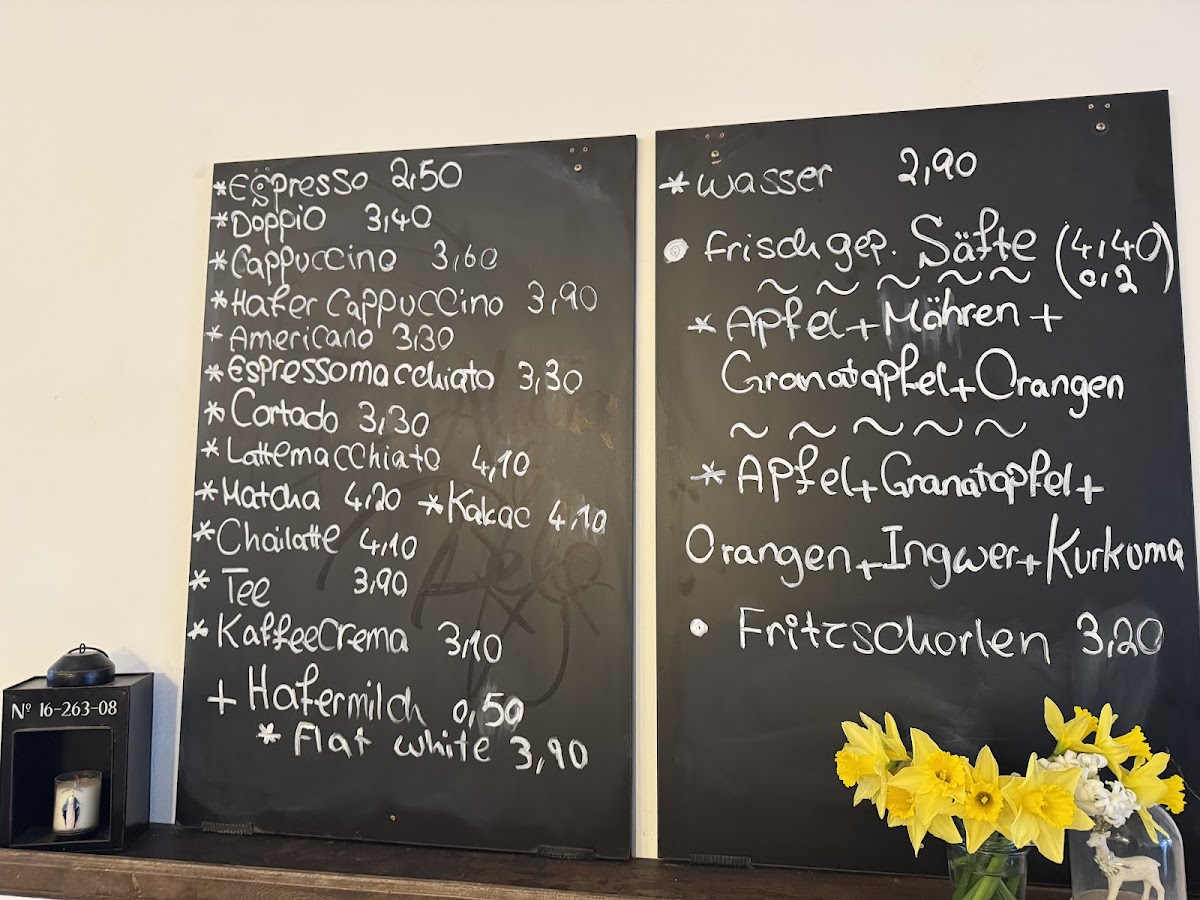 * Espresso 2,50
* Doppio 3,40
* Cappuccino 3,60
* Hafer Cappuccino 3,90
* Americano 3,30
* Espressomacchiato 3,30
* Cortado 3,30
* Lattemacchiato 4,10
* Matcha 4,20 * Kakao 4,10
* Chailatte 4,10
* Tee 3,90
* Kaffeecrema 3,10
+ Hafermilch 0,50
* Flat white 3,90
* wasser 2,90
• frischgep. Säfte (4,40)
0,2
~ ~ ~ ~ ~
* Apfel + Möhren +
Granatapfel + Orangen
~ ~ ~ ~ ~
* Apfel + Granatapfel +
Orangen + Ingwer + Kurkuma
• Fritzschorlen 3,20
Nº 16-263-08